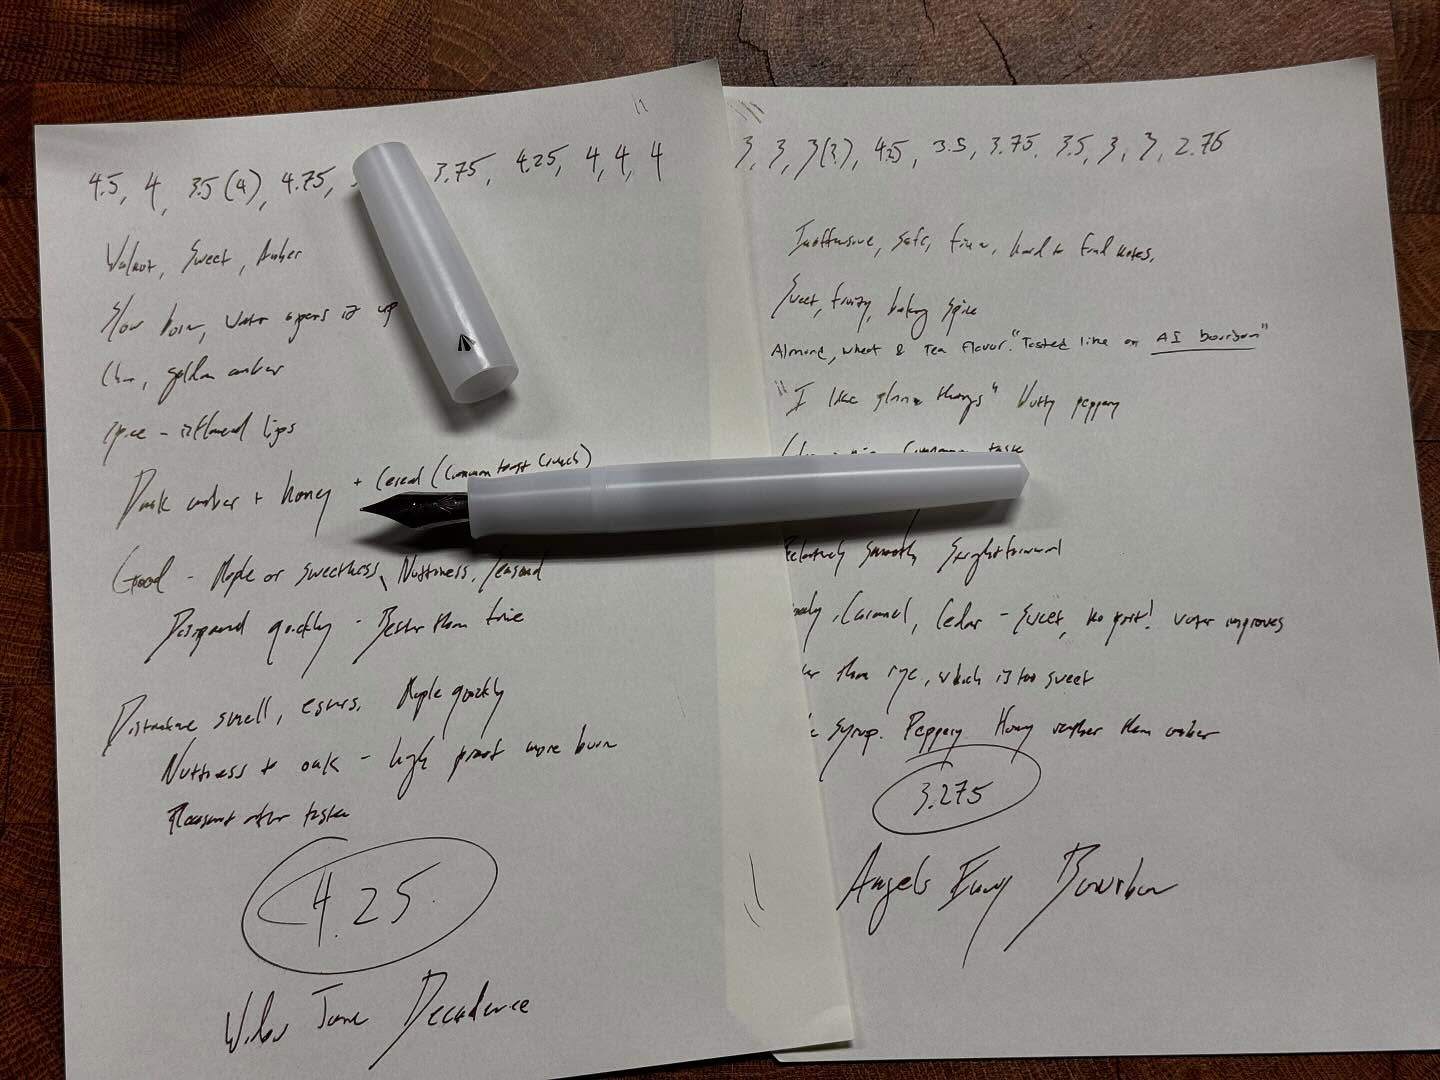 4.5, 4, 3.5 (4), 4.75, 3.75, 4.25, 4, 4, 4
Walnut, Sweet, Amber
Slow burn, water opens it up
Char, golden amber
Spice - inflamed lips
Dark amber + honey + Cereal (Cinnamon toast crunch)
Good - Maple or sweetness, Nuttiness, Seasoned
Disappeared quickly - Better than
Distinctive smell, esters. Maple quickly
Nuttiness + oak - high proof more burn
Pleasant after taste
4.25
Decadence
3, 3, 3(?), 4.25, 3.5, 3.75, 3.5, 3, 3, 2.75
Inoffensive, safe, fine, hard to find notes,
Sweet, fruity, baking spice
Almond, wheat & Tea flavor. "Tasted like an AI bourbon"
"I like things" Nutty peppery
Cinnamon taste
Relatively smooth, Straightforward
Caramel, Cedar - Sweet, no port! Water improves
than rye, which is too sweet
syrup. Peppery Honey rather than amber
3.275
Angels Envy Bourbon